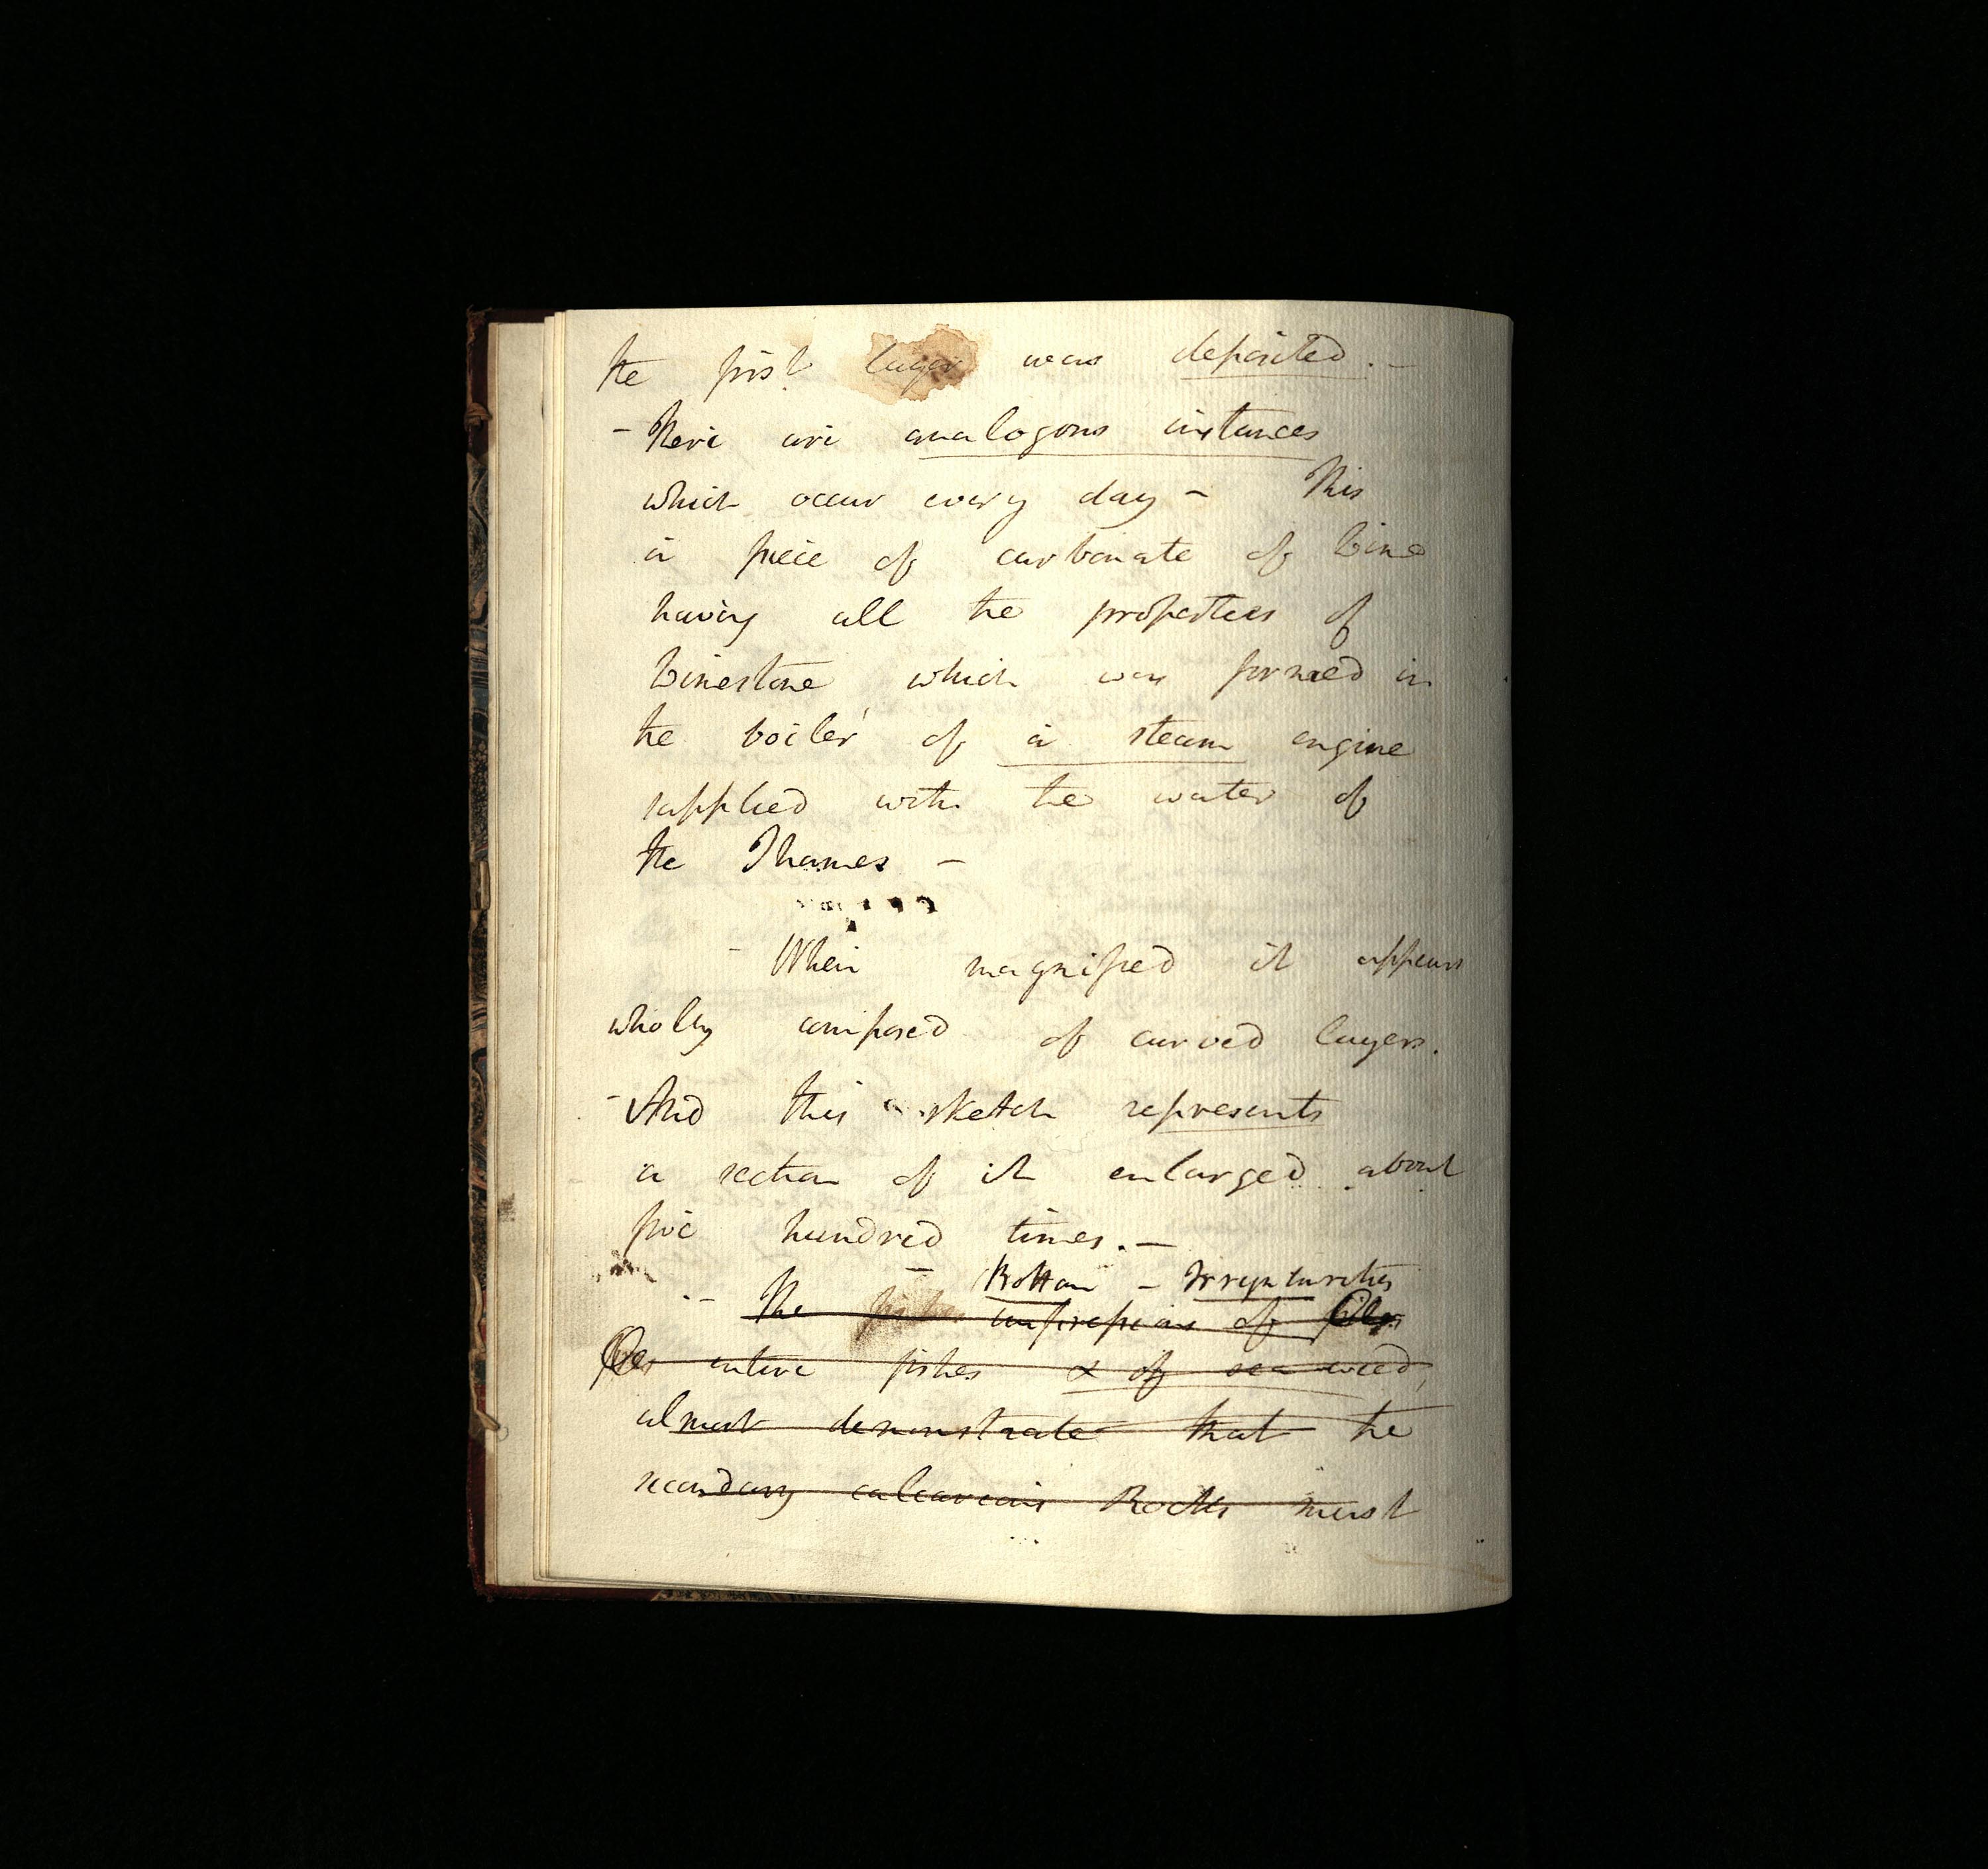 the first layer was deposited. —
- There are analogous instances
which occur every day - This
is piece of carbonate of Lime
having all the properties of
Limestone which was formed in
the boiler of a steam engine
supplied with the water of
the Thames -
- When magnified it appears
wholly composed of curved layers.
- And this sketch represents
a section of it enlarged about
five hundred times. —
- Bottom - Irregularities
- The impressions of
entire fishes & of sea weed,
almost demonstrate that the
secondary calcareous Rocks must